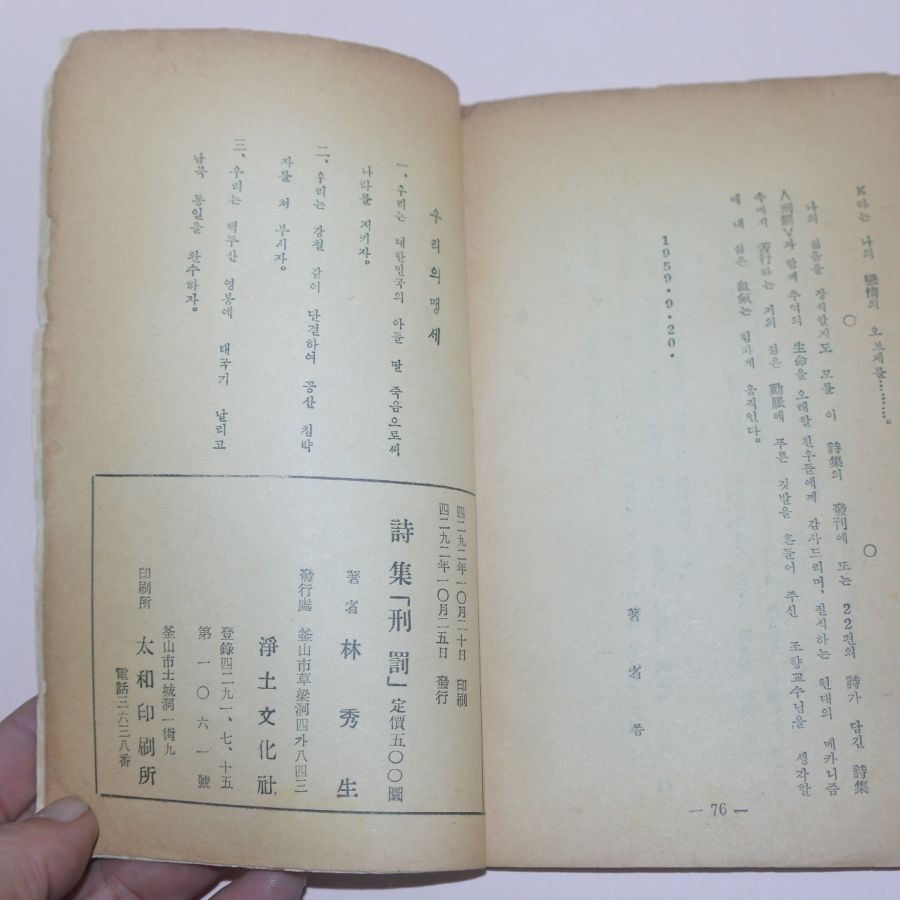 K라는 나의 戀情의 오브제를………。
○ ○
나의 젊음을 장식할지도 모를 이 詩集의 發刊에 또는 22편의 詩가 담긴 詩集
∧刑罰∨과 함께 추억의 生命을 오래할 친우들에게 감사드리며, 질식하는 현대의 메카니즘
속에서 苦行하는 저의 젊은 動脈에 푸른 깃발을 흔들어 주신 조향교수님을 생각할
때 내 젊은 血氣는 힘차게 움직인다。
1959・9・20・
著者 씀
— 76 —
우리의 맹세
一、우리는 대한민국의 아들 딸 죽음으로써
나라를 지키자。
二、우리는 강철 같이 단결하여 공산 침략
자를 쳐 부시자。
三、우리는 백두산 영봉에 태극기 날리고
남북 통일을 완수하자。
四二九二年 一〇月二十日 印刷
四二九二年 一〇月二五日 發行
詩集「刑罰」 定價五〇〇圜
著者 林秀生
發行處 釜山市草梁洞四가八四三
淨土文化社
登錄四二九一、七、十五
第一〇六一號
釜山市土城洞一街九
印刷所 太和印刷所
電話三六三八番